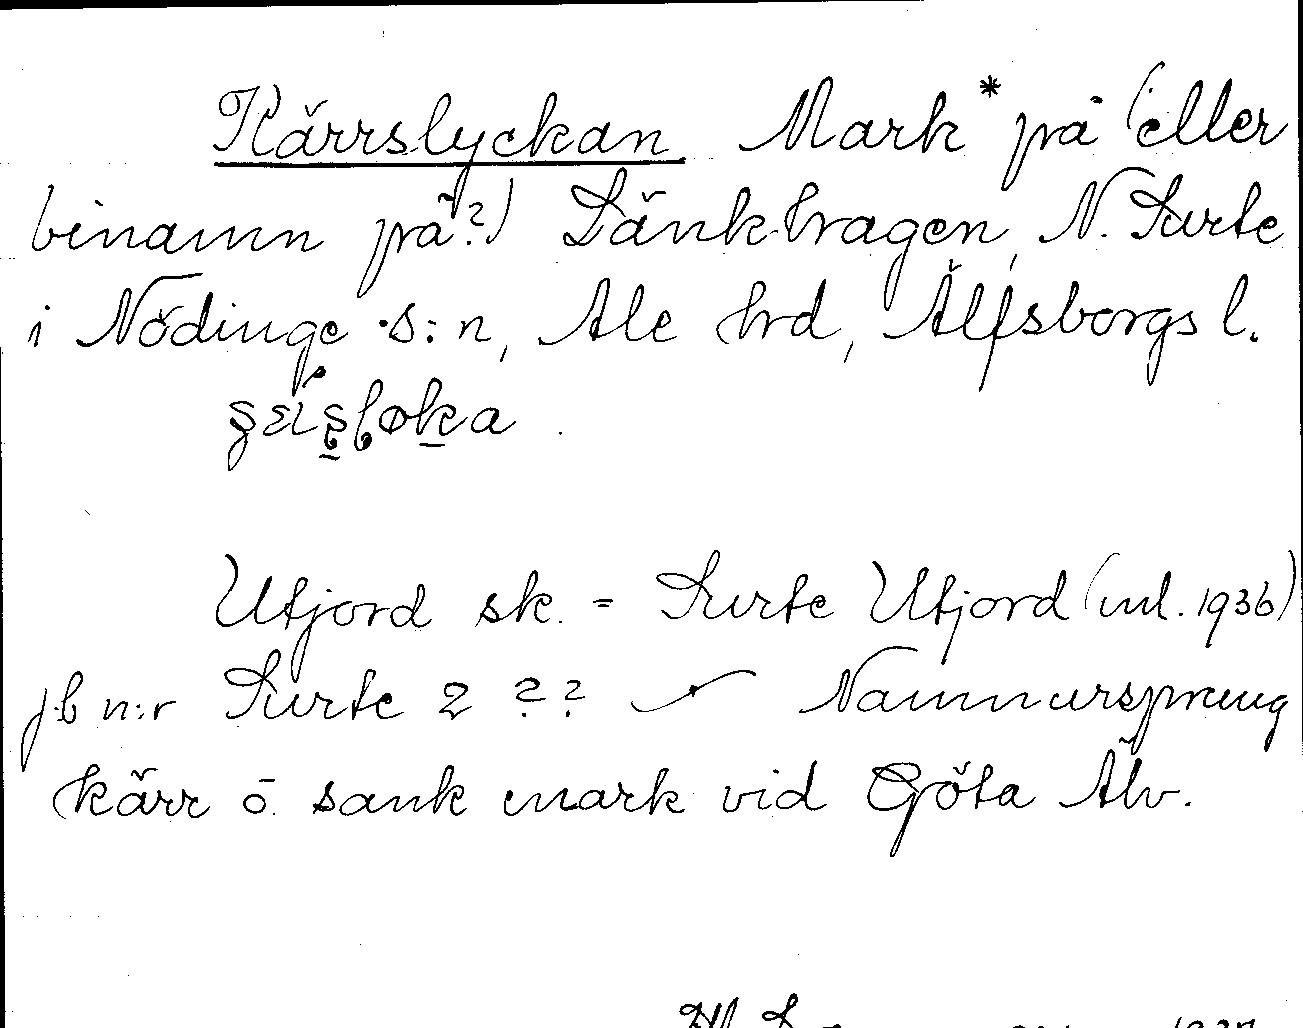 Kärrslyckan Mark* på (eller
binamn på?) Sänkhagen, N. Surte
i Nödinge s:n, Ale hrd, Älfsborgs l.
Utjord sk. = Surte Utjord (inl. 1936)
jb n:r Surte 2 ?? Namnursprung
kärr ō sank mark vid Göta Älv.